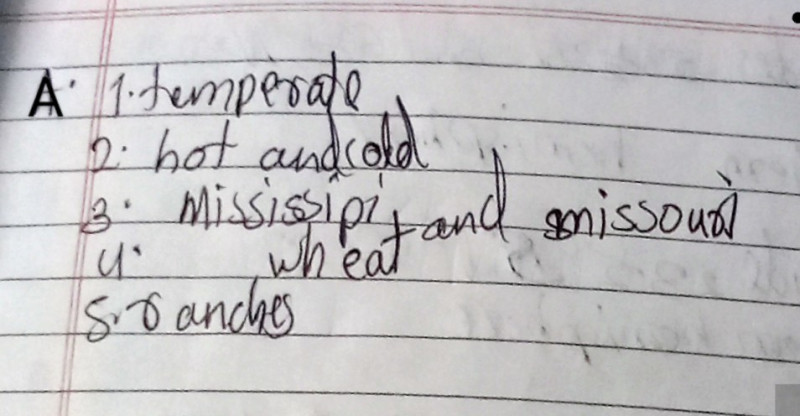 A. 1. temperate
2. hot and cold
3. Mississipi and missouri
4. wheat
5. ranches